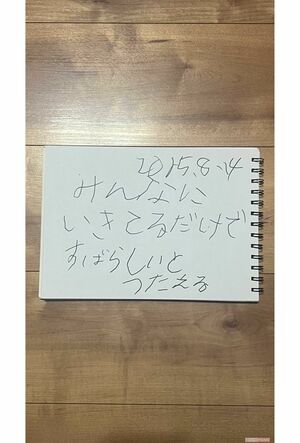 2015.8.4
みんなに
いきてるだけで
すばらしいと
つたえる